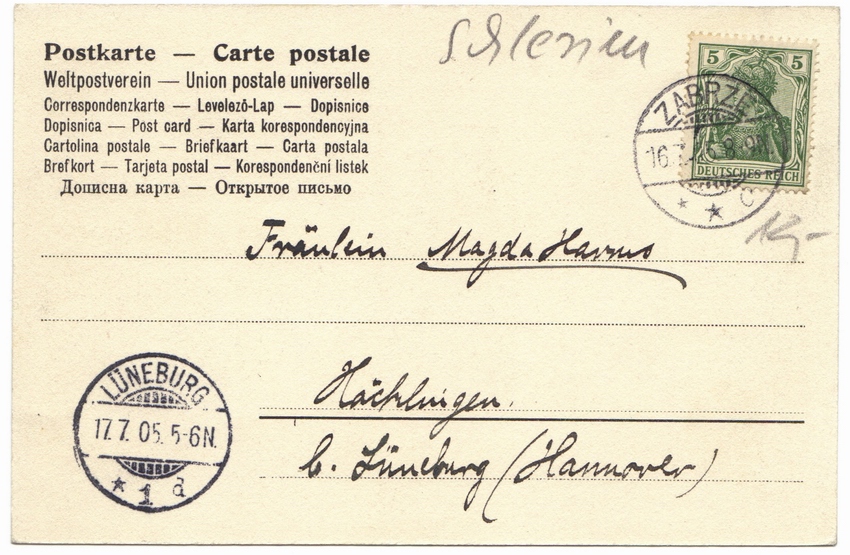 Postkarte — Carte postale
Weltpostverein — Union postale universelle
Correspondenzkarte — Levelezō-Lap — Dopisnice
Dopisnica — Post card — Karta korespondencyjna
Cartolina postale — Briefkaart — Carta postala
Brefkort — Tarjeta postal — Korespondenční listek
Дописна карта — Открытое письмо
Schlesien
5 5
DEUTSCHES REICH
ZABRZE
16.7. 8-9N.
* * C
Fräulein Magda Harms
Häcklingen.
b. Lüneburg (Hannover)
LÜNEBURG
17.7.05.5-6N.
* 1 d